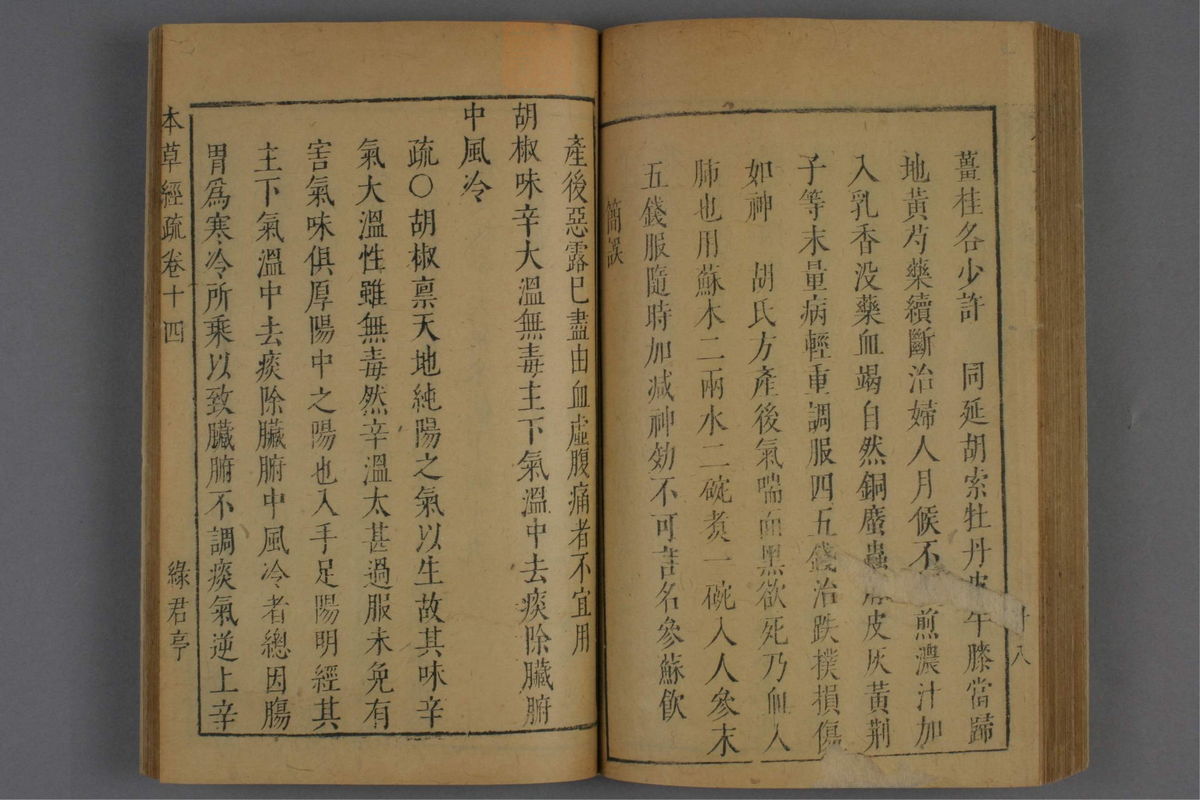 薑桂名少許　同延胡索牡丹皮牛膝當歸
地黃芍藥續斷治婦人月候不煎濃汁加
入乳香没藥血竭自然銅䗪蟲皮灰黃荆
子等末量病輕重調服四五錢治跌撲損傷
如神　胡氏方產後氣喘面黑欲死乃血入
肺也用蘇木二兩水二碗煮一碗入人參末
五錢服隨時加減神効不可言名參蘇飲
簡誤
十八
產後惡露已盡由血虛腹痛者不宜用
胡椒味辛大溫無毒主下氣溫中去痰除臟腑
中風冷
疏○胡椒禀天地純陽之氣以生故其味辛
氣大溫性雖無毒然辛溫太甚過服未免有
害氣味俱厚陽中之陽也入手足陽明經其
主下氣溫中去痰除臟腑中風冷者總因腸
胃爲寒冷所乘以致臟腑不調痰氣逆上辛
本草經疏卷十四
綠君亭